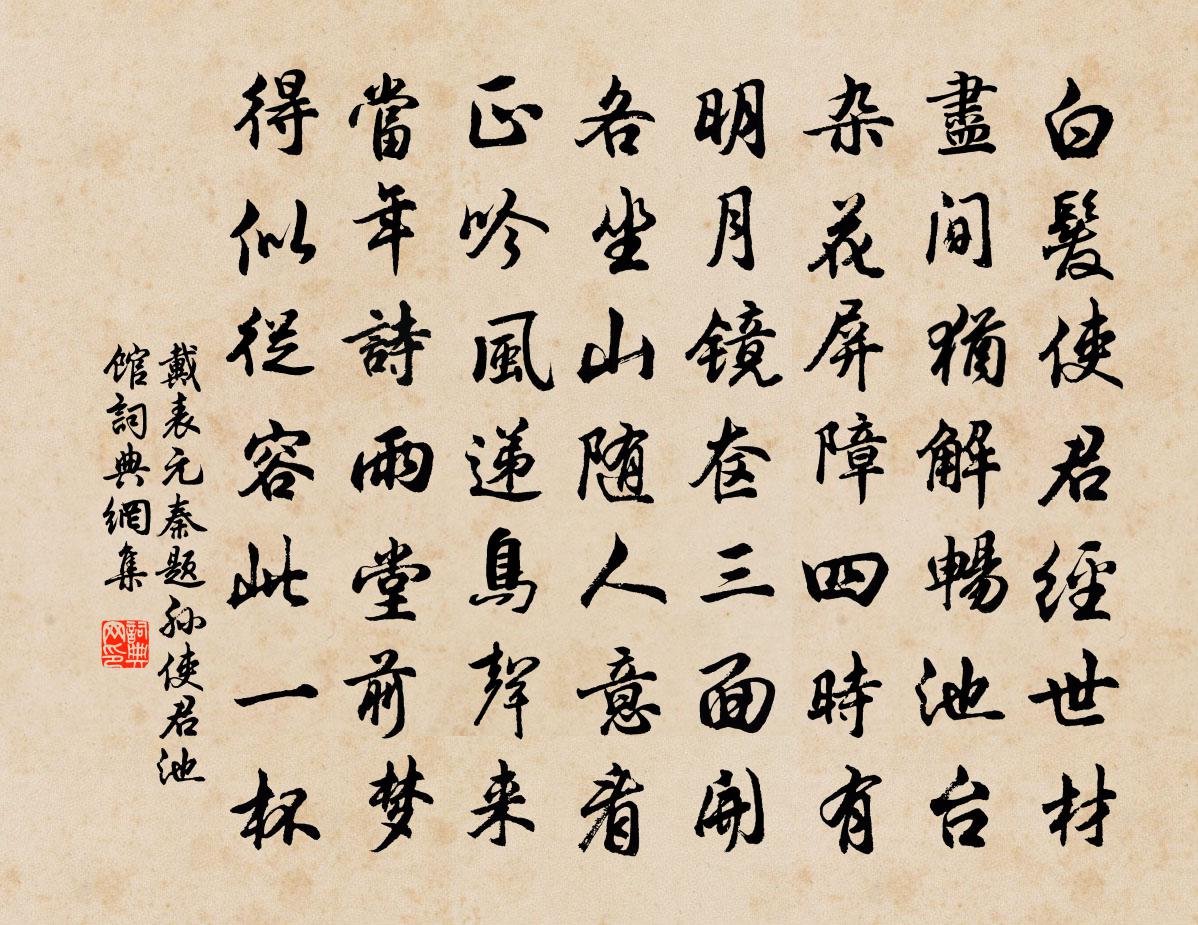 白髮使君經世材
盡間猶解暢池台
杂花屏障四時有
明月镜奁三面開
各坐山随人意看
正吟風递鳥聲来
當年詩雨堂前梦
得似從容此一杯
戴表元秦题孙使君池
館詞典網集
詞典网印